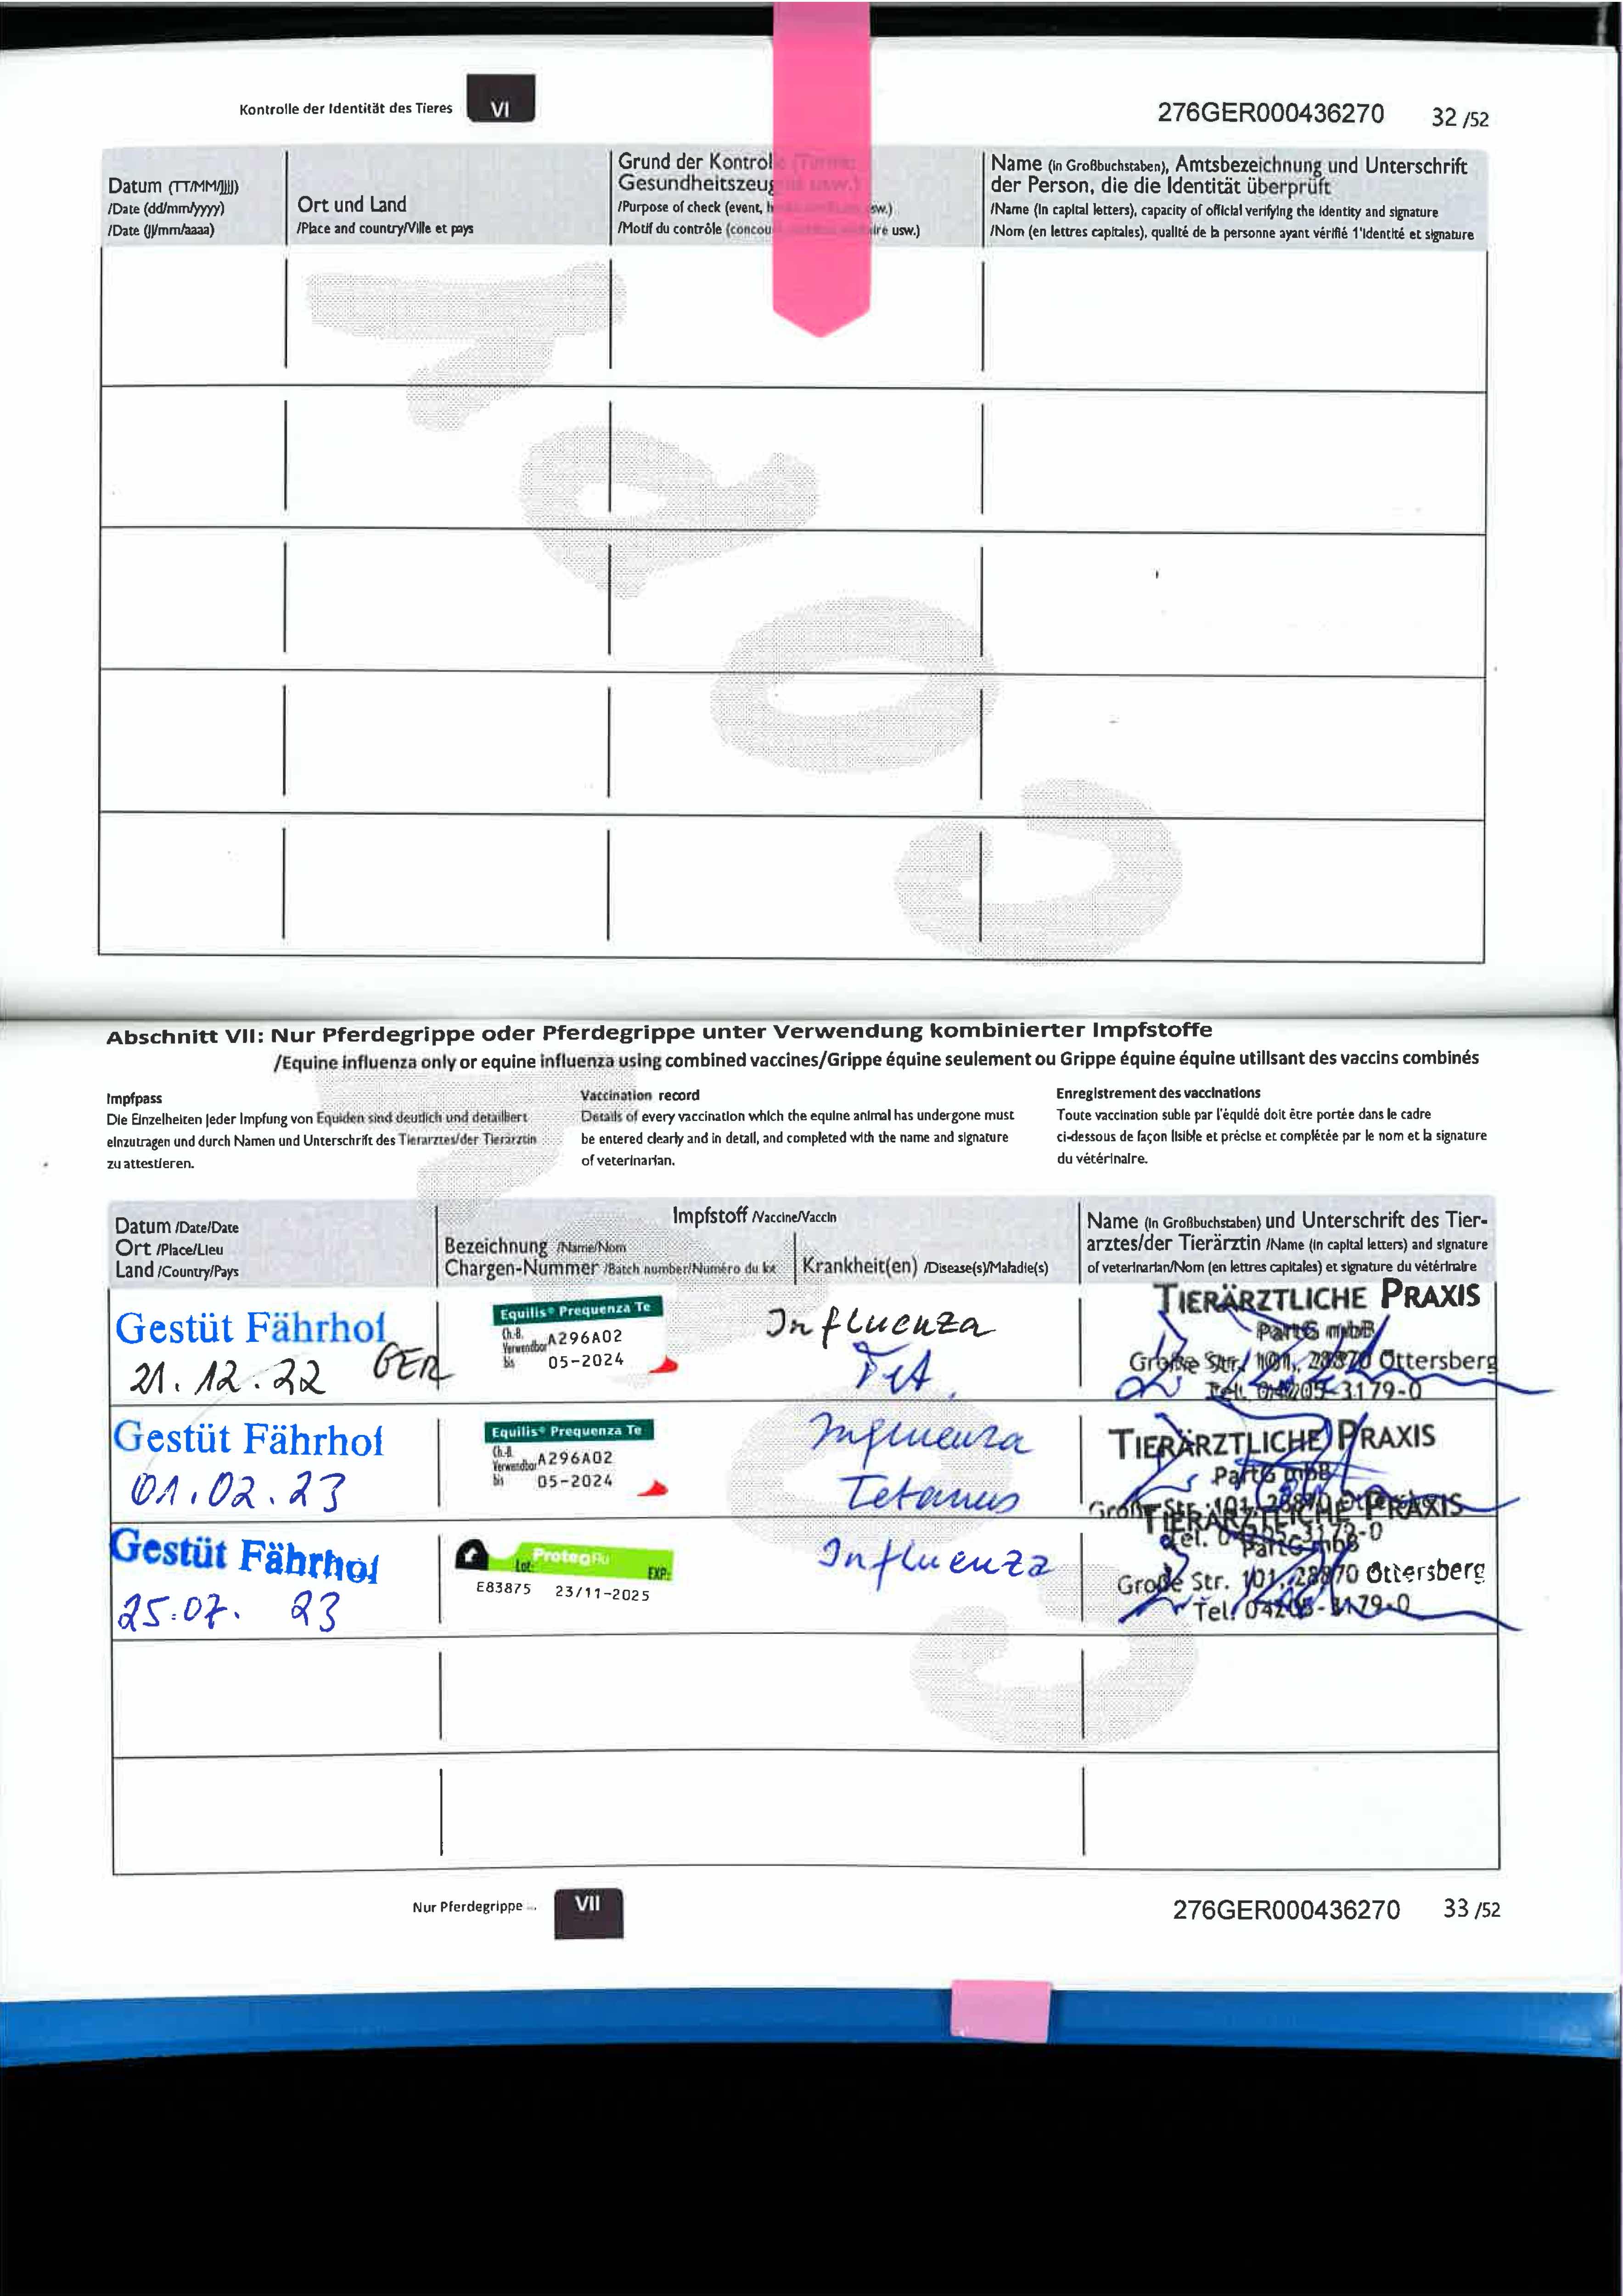 Kontrolle der Identität des Tieres VI 276GER000436270 32 /52
Datum (TT/MM/JJJJ)
/Date (dd/mm/yyyy)
/Date (jj/mm/aaaa)
Ort und Land
/Place and country/Ville et pays
Grund der Kontrol
Gesundheitszeug
/Purpose of check (event, h
/Motif du contrôle (concou usw.)
Name (in Großbuchstaben), Amtsbezeichnung und Unterschrift
der Person, die die Identität überprüft
/Name (in capital letters), capacity of official verifying the identity and signature
/Nom (en lettres capitales), qualité de la personne ayant vérifié 1'identité et signature
Abschnitt VII: Nur Pferdegrippe oder Pferdegrippe unter Verwendung kombinierter Impfstoffe
/Equine influenza only or equine influenza using combined vaccines/Grippe équine seulement ou Grippe équine équine utilisant des vaccins combinés
Impfpass
Die Einzelheiten jeder Impfung von Equiden sind deutlich und detailliert
einzutragen und durch Namen und Unterschrift des Tierarztes/der Tierärztin
zu attestieren.
Vaccination record
Details of every vaccination which the equine animal has undergone must
be entered clearly and in detail, and completed with the name and signature
of veterinarian.
Enregistrement des vaccinations
Toute vaccination subie par l'équidé doit être portée dans le cadre
ci-dessous de façon lisible et précise et complétée par le nom et la signature
du vétérinaire.
Datum /Date/Date
Ort /Place/Lieu
Land /Country/Pays
Impfstoff /Vaccine/Vaccin
Bezeichnung /Name/Nom
Chargen-Nummer /Batch number/Numéro du lot
Krankheit(en) /Disease(s)/Maladie(s)
Name (in Großbuchstaben) und Unterschrift des Tier-
arztes/der Tierärztin /Name (in capital letters) and signature
of veterinarian/Nom (en lettres capitales) et signature du vétérinaire
Gestüt Fährhof
21.12.22 GER
Equilis® Prequenza Te
Ch.-B. A296A02
Verwendbar
bis 05-2024
Influenza
Tet.
TIERÄRZTLICHE PRAXIS
PartG mbB
Große Str. 101, 28870 Ottersberg
Tel. 04205-3179-0
Gestüt Fährhof
01.02.23
Equilis® Prequenza Te
Ch.-B. A296A02
Verwendbar
bis 05-2024
Influenza
Tetanus
TIERÄRZTLICHE PRAXIS
PartG mbB
Gestüt Fährhof
25.07. 23
ProteqFlu
Lot: EXP:
E83875 23/11-2025
Influenza
TIERÄRZTLICHE PRAXIS
PartG mbB
Große Str. 101, 28870 Ottersberg
Tel. 04205-3179-0
Nur Pferdegrippe ... VII 276GER000436270 33 /52